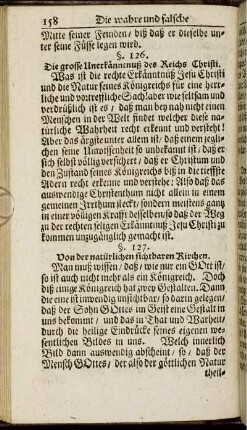 158 Die wahre und falsche
Mitte seiner Feinden, biß daß er dieselbe un-
ter seine Füsse legen wird.
§. 126.
Die grosse Unerkanntnuß des Reichs Christi.
Was ist die rechte Erkanntnuß Jesu Christi
und die Natur seines Königreichs für eine herr-
liche und vortreffliche Sach! aber wie seltsam und
verdrüßlich ist es, daß man bey nah nicht einen
Menschen in der Welt findet welcher diese na-
türliche Wahrheit recht erkennt und verstehe!
Aber das ärgste unter allem ist, daß einem jegli-
chen seine Unwissenheit so unbekant ist, daß er
sich selbst völlig versichert, daß er Christum und
den Zustand seines Königreichs biß in die tieffste
Adern recht erkenne und verstehe: Also daß das
auswendige Christenthum nicht allein in einem
gemeinen Irrthum steckt, sondern meistens gantz
in einer völigen Krafft desselben, so daß der Weg
zu der rechten seligen Erkanntnuß Jesu Christi zu
kommen unzugänglich gemacht ist.
§. 127.
Von der natürlichen sichtbaren Kirchen.
Man muß wissen, daß, wie nur ein GOtt ist,
so ist auch nicht mehr als ein Königreich. Doch
diß einige Königreich hat zwey Gestalten. Dann
die eine ist inwendig unsichtbar so darin gelegen,
daß der Sohn GOttes im Geist eine Gestalt in
uns bekommt, und das in That und Warheit,
durch die heilige Eindrücke seines eigenen we-
sentlichen Bildes in uns. Welch innerlich
Bild dann auswendig abscheint, so, daß der
Mensch GOttes, der also der göttlichen Natur
theil-